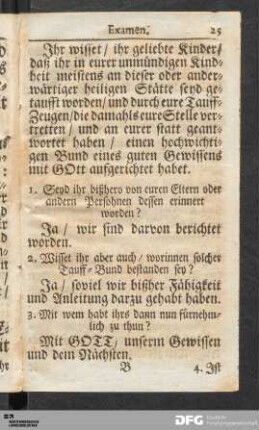 Examen. 25
Ihr wisset / ihr geliebte Kinder /
daß ihr in eurer unmündigen Kind-
heit meistens an dieser oder ander-
wärtiger heiligen Stätte seyd ge-
taufft worden / und durch eure Tauff-
Zeugen / die damahls eure Stelle ver-
tretten / und an eurer statt geant-
wortet haben / einen hochwichti-
gen Bund eines guten Gewissens
mit GOtt aufgerichtet habet.
1. Seyd ihr bißhero von euren Eltern oder
andern Persohnen dessen erinnert
worden?
Ja / wir sind darvon berichtet
worden.
2. Wisset ihr aber auch / worinnen solcher
Tauff-Bund bestanden sey?
Ja / soviel wir bißher Fähigkeit
und Anleitung darzu gehabt haben.
3. Mit wem habt ihrs dann nun fürnehm-
lich zu thun?
Mit GOTT / unserm Gewissen
und dem Nächsten.
B 4. Ist
DFG